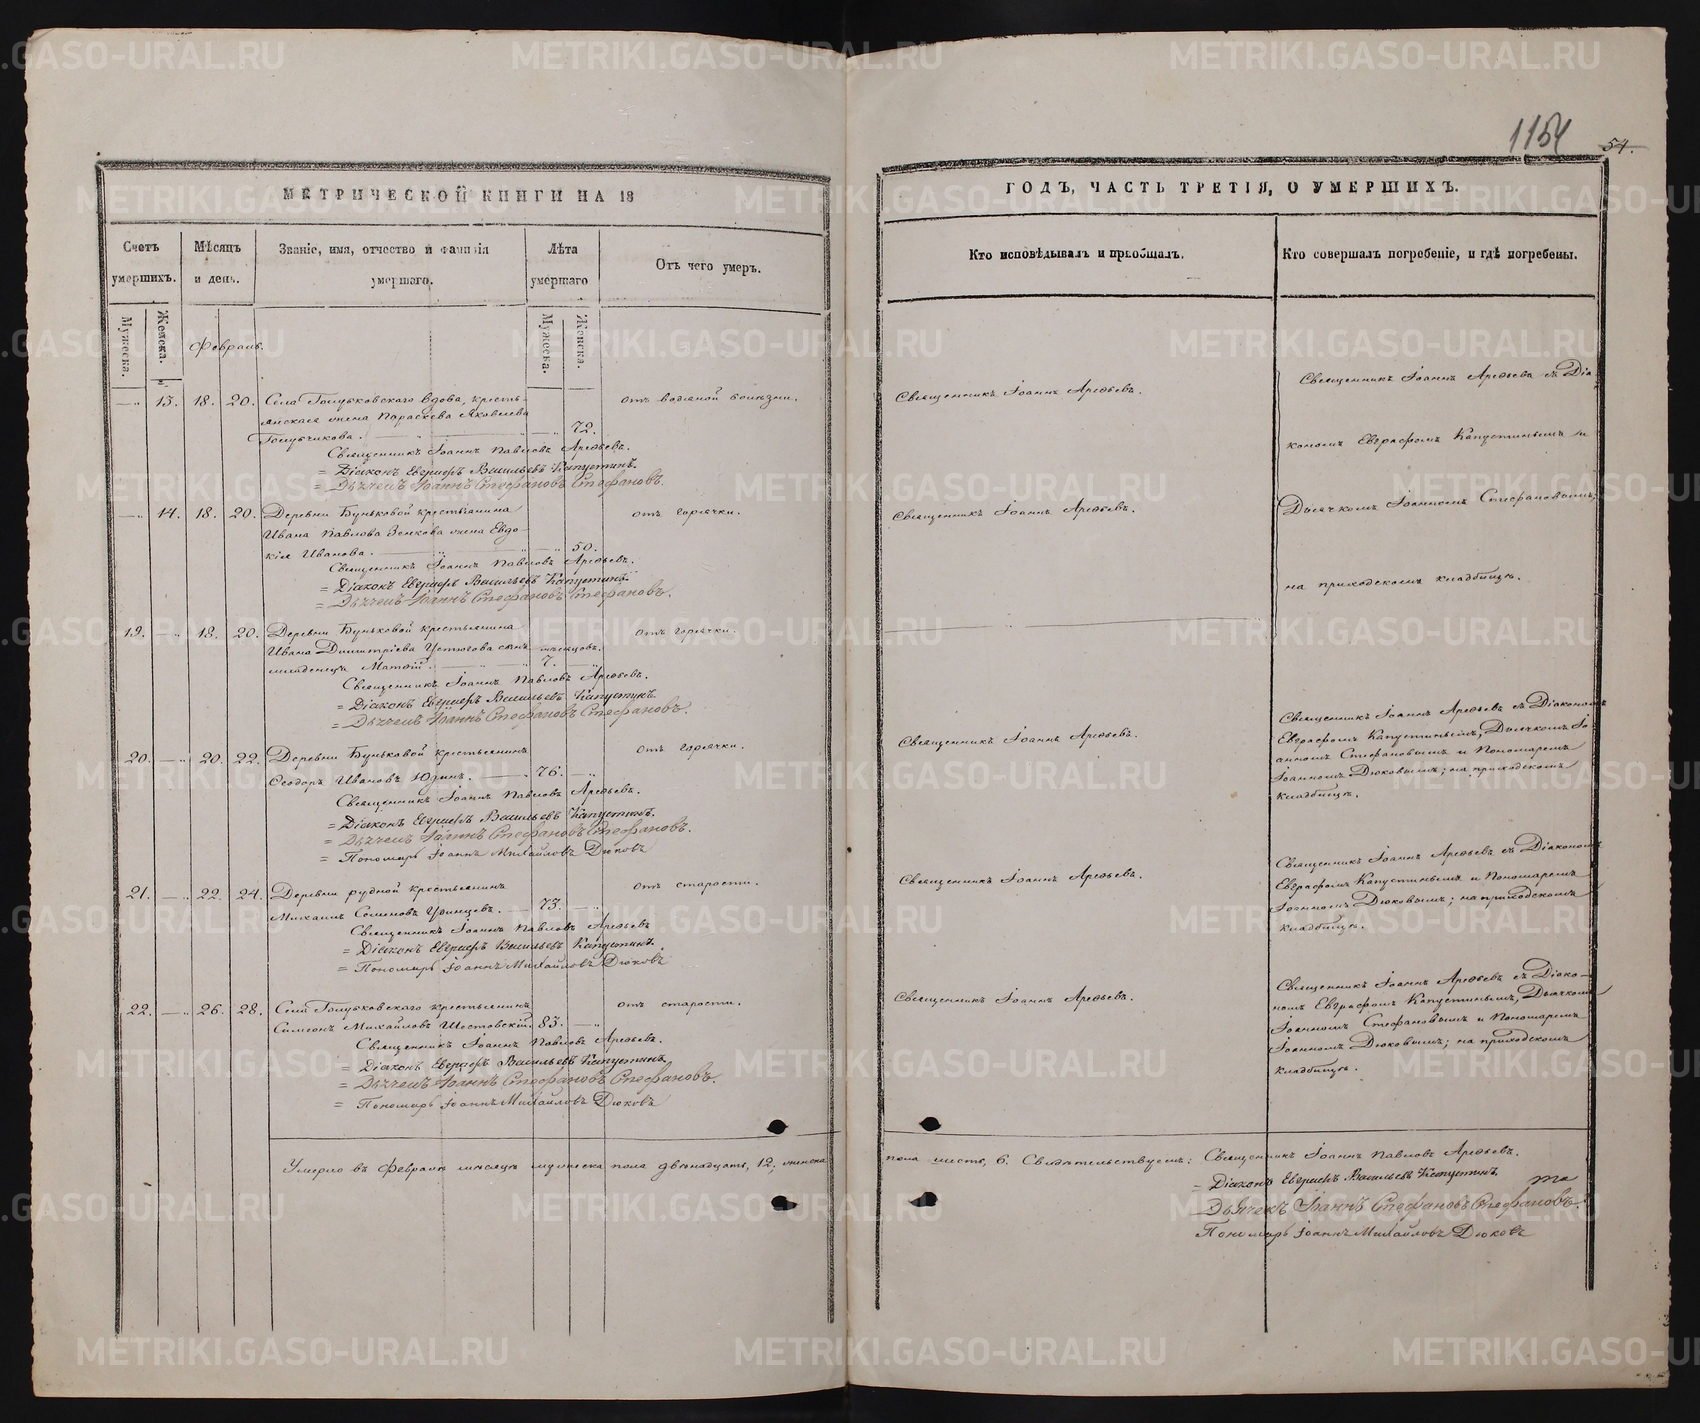 1154
54.
МЕТРИЧЕСКОЙ КНИГИ НА 18
ГОДЪ, ЧАСТЬ ТРЕТІЯ, О УМЕРШИХЪ.
Счетъ умершихъ.
Мѣсяцъ и день.
Званіе, имя, отчество и фамилія умершаго.
Лѣта умершаго
Отъ чего умеръ.
Кто исповѣдывалъ и пріобщалъ.
Кто совершалъ погребеніе, и гдѣ погребены.
Мужеска.
Женска.
Мужеска.
Женска.
Февраль.
13. 18. 20. Села вдова, кресть-
янская жена Параскева Яковлева
72.
отъ водяной болѣзни.
Священникъ Іоаннъ Павловъ Арефьевъ.
= Діаконъ Евграфъ Васильевъ Капустинъ.
= Дьячекъ Іоаннъ Стефановъ Стефановъ.
Священникъ Іоаннъ Арефьевъ.
Священникъ Іоаннъ Арефьевъ съ Діа-
кономъ Евграфомъ Капустинымъ и
Дьячкомъ Іоанномъ Стефановымъ,
на приходскомъ кладбищѣ.
14. 18. 20. Деревни Буньковой крестьянина
Ивана Павлова Зенкова жена Евдо-
кія Иванова. 50.
отъ горячки.
Священникъ Іоаннъ Павловъ Арефьевъ.
= Діаконъ Евграфъ Васильевъ Капустинъ.
= Дьячекъ Іоаннъ Стефановъ Стефановъ.
Священникъ Іоаннъ Арефьевъ.
19. 18. 20. Деревни Буньковой крестьянина
Ивана Димитріева Устюгова сынъ
младенецъ Матѳій. 7. мѣсяцовъ.
отъ горячки.
Священникъ Іоаннъ Павловъ Арефьевъ.
= Діаконъ Евграфъ Васильевъ Капустинъ.
= Дьячекъ Іоаннъ Стефановъ Стефановъ.
20. 20. 22. Деревни Буньковой крестьянинъ
Ѳеодоръ Ивановъ Юринъ. 76.
отъ горячки.
Священникъ Іоаннъ Павловъ Арефьевъ.
= Діаконъ Евграфъ Васильевъ Капустинъ.
= Дьячекъ Іоаннъ Стефановъ Стефановъ.
= Пономарь Іоаннъ Михайловъ Дюковъ
Священникъ Іоаннъ Арефьевъ.
Священникъ Іоаннъ Арефьевъ съ Діакономъ
Евграфомъ Капустинымъ, Дьячкомъ Іо-
анномъ Стефановымъ и Пономаремъ
Іоанномъ Дюковымъ; на приходскомъ
кладбищѣ.
21. 22. 24. Деревни Рудной крестьянинъ
Михаилъ Семеновъ 73.
отъ старости.
Священникъ Іоаннъ Павловъ Арефьевъ
= Діаконъ Евграфъ Васильевъ Капустинъ.
= Пономарь Іоаннъ Михайловъ Дюковъ
Священникъ Іоаннъ Арефьевъ.
Священникъ Іоаннъ Арефьевъ съ Діакономъ
Евграфомъ Капустинымъ и Пономаремъ
Іоанномъ Дюковымъ; на приходскомъ
кладбищѣ.
22. 26. 28. Села крестьянинъ
Симеонъ Михайловъ Шестовскій. 83.
отъ старости.
Священникъ Іоаннъ Павловъ Арефьевъ.
= Діаконъ Евграфъ Васильевъ Капустинъ,
= Дьячекъ Іоаннъ Стефановъ Стефановъ.
= Пономарь Іоаннъ Михайловъ Дюковъ
Священникъ Іоаннъ Арефьевъ.
Священникъ Іоаннъ Арефьевъ съ Діако-
номъ Евграфомъ Капустинымъ, Дьячкомъ
Іоанномъ Стефановымъ и Пономаремъ
Іоанномъ Дюковымъ; на приходскомъ
кладбищѣ.
Умерло въ Февралѣ мѣсяцѣ мужеска пола двенадцать, 12; женска
пола шесть, 6. Свидѣтельствуемъ: Священникъ Іоаннъ Павловъ Арефьевъ.
= Діаконъ Евграфъ Васильевъ Капустинъ.
Дьячекъ Іоаннъ Стефановъ Стефановъ.
Пономарь Іоаннъ Михайловъ Дюковъ
METRIKI.GASO-URAL.RU